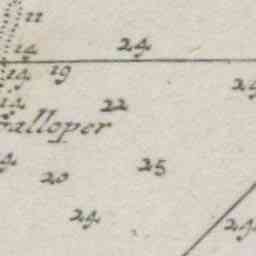 11
14
24
14
19
14
22
Galloper
20
25
24